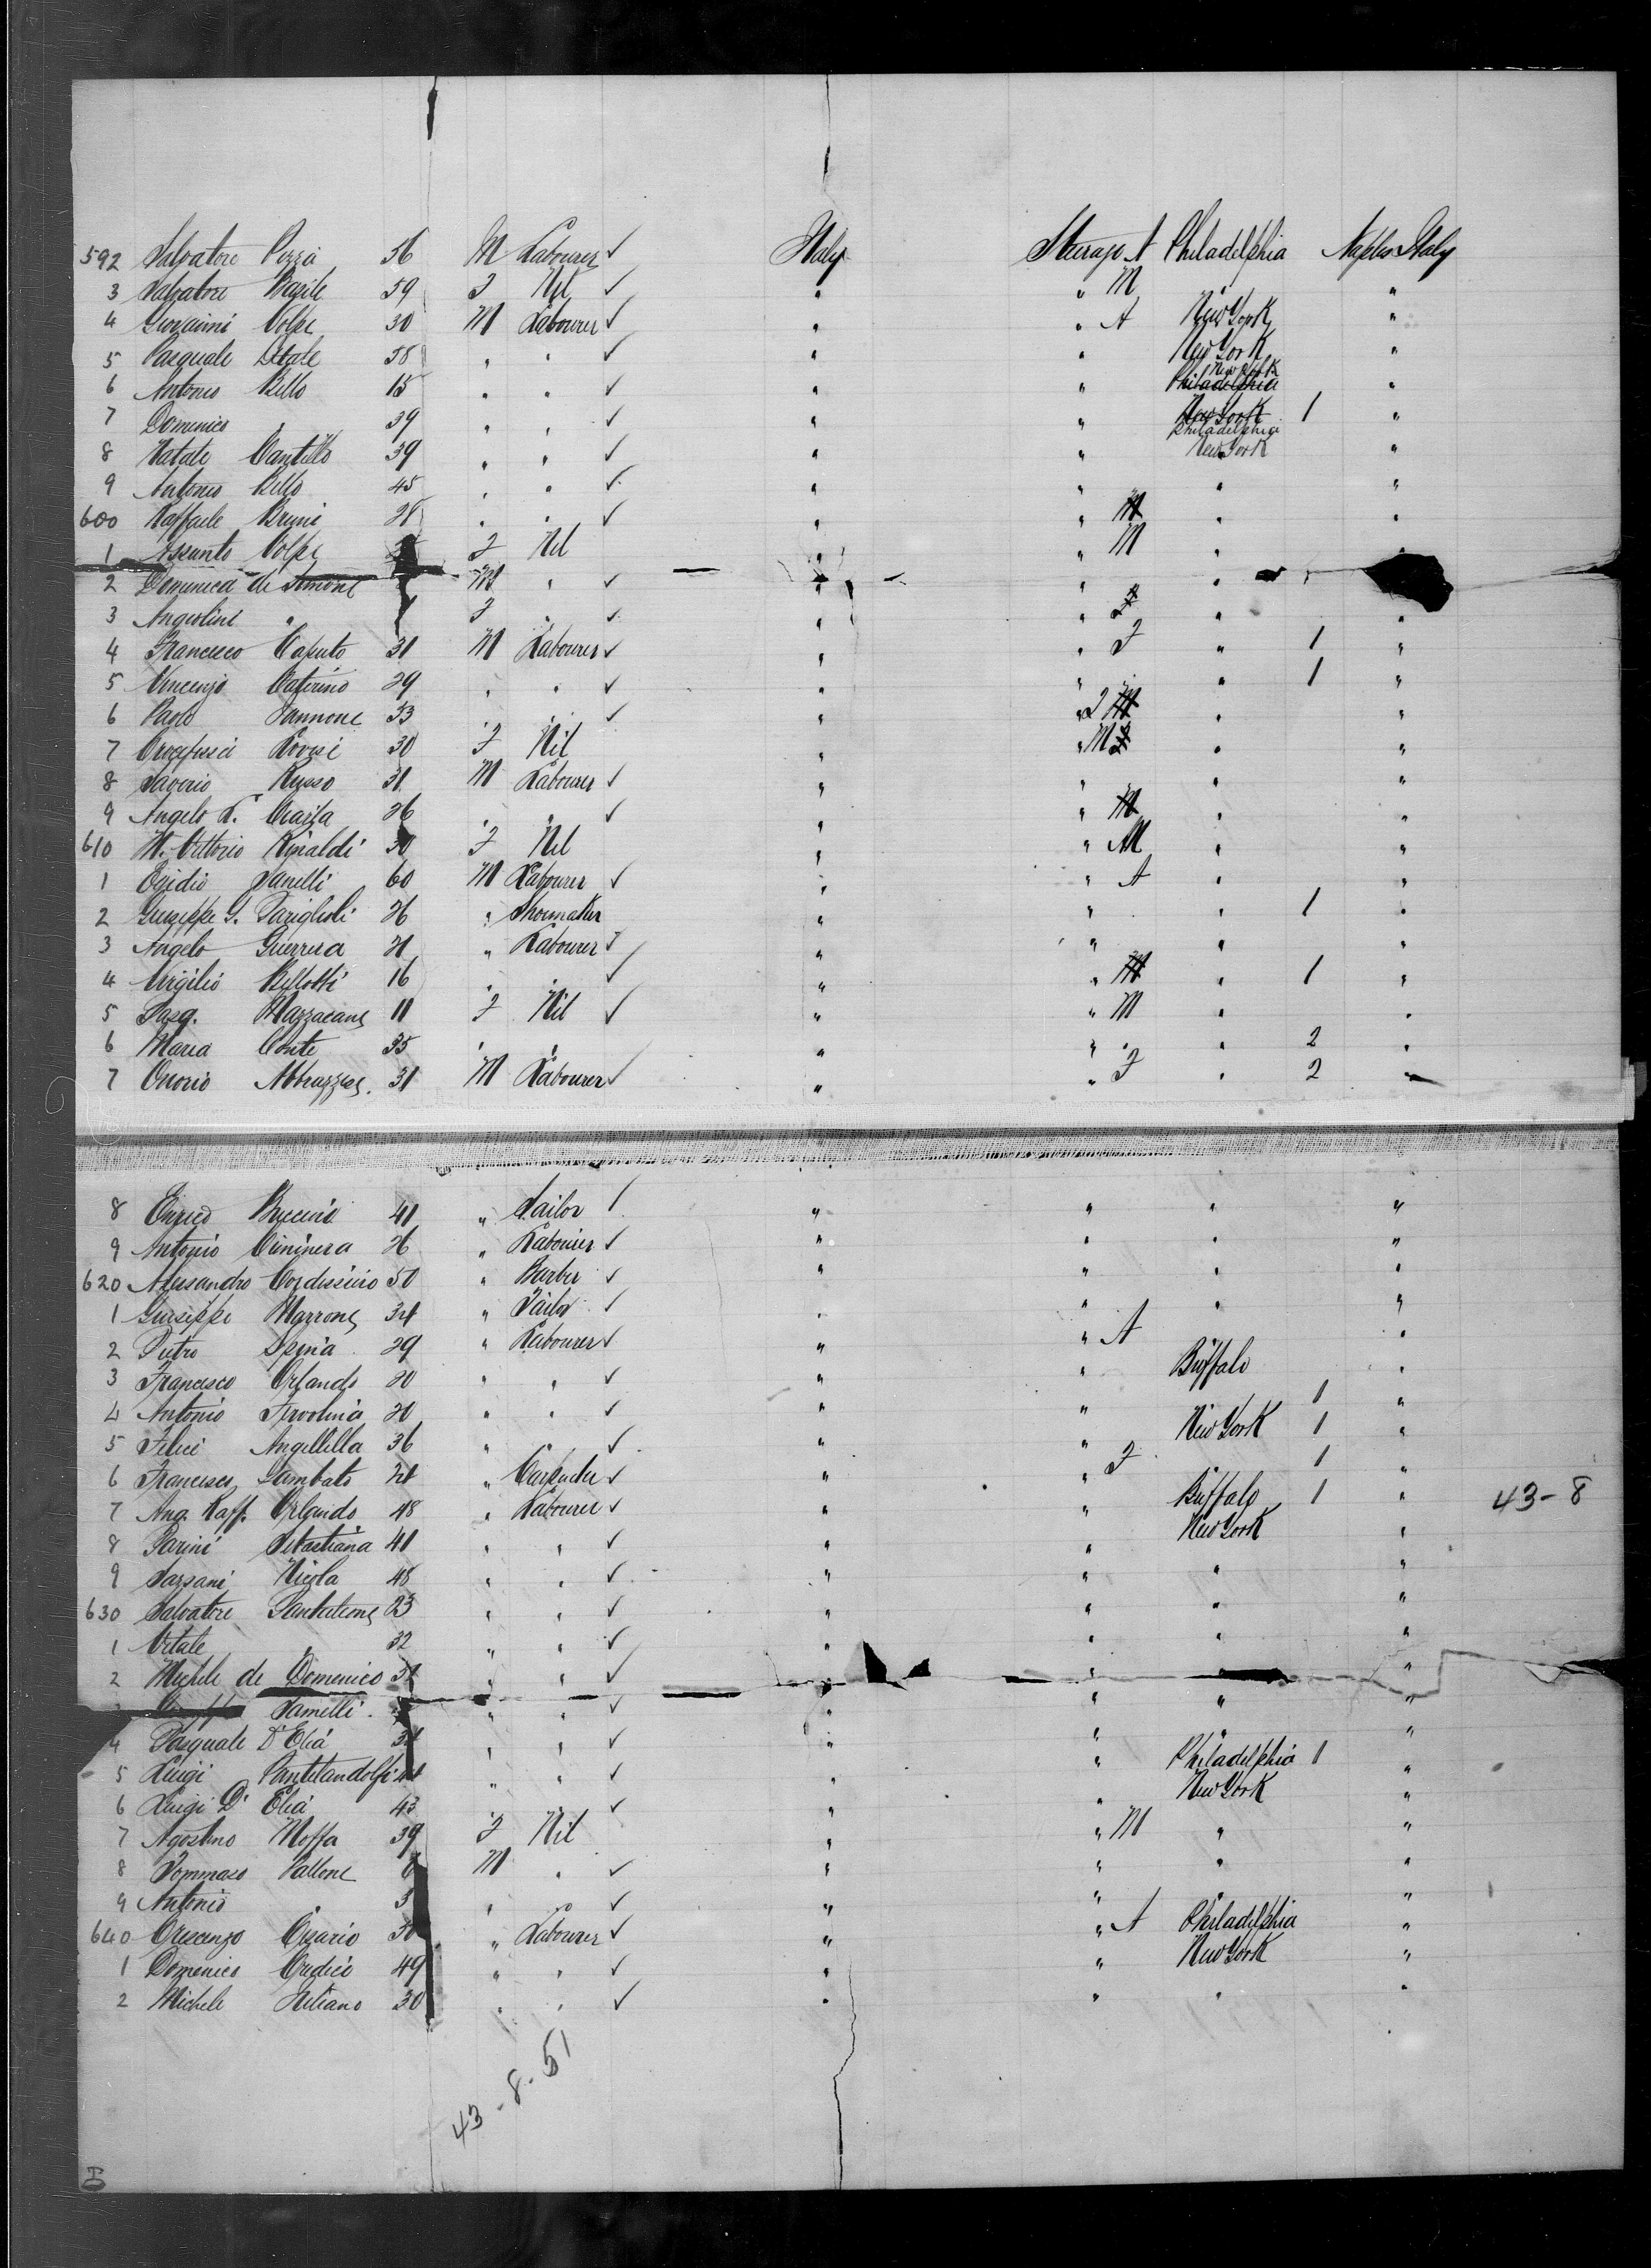 592 Salvatore Pezza 36 M Labourer ✓ Italy Steerage A Philadelphia Naples Italy
3 Salvatore Basile 59 F Nil ✓ " " M " "
4 Giovanni Volpe 30 M Labourer ✓ " " A New York "
5 Pasquale 38 " " ✓ " " New York "
6 Antonio Bello 15 " " ✓ " " New York Philadelphia "
7 Domenico " 39 " " ✓ " " New York Philadelphia 1 "
8 Natale Cantillo 39 " " ✓ " " New York "
9 Antonio Bello 45 " " ✓ " " " "
600 Raffaele Bruni 28 " " ✓ " " M " "
1 Assunto Volpe F Nil " " M " "
2 Domenica de Simone M " ✓ " " " "
3 Angiolini " F " ✓ " " F " "
4 Francesco Caputo 31 M Labourer ✓ " " F " 1 "
5 Vincenzo Caterino 29 " " ✓ " " " 1 "
6 Paolo Iannone 33 " " ✓ " " F M " "
7 30 F Nil " " M F " "
8 Saverio Russo 31 M Labourer ✓ " " " "
9 Angelo 26 " " ✓ " " M " "
610 M. Vittorio Rinaldi 30 F Nil " " M " "
1 Egidio Ianelli 60 M Labourer ✓ " " A " "
2 Giuseppe G. 26 " Shoemaker " " " 1 "
3 Angelo Guerrera 21 " Labourer ✓ " " " "
4 Virgilio Bellotti 16 " " ✓ " " M " 1 "
5 Pasq. Mazzacane 11 F Nil ✓ " " M " "
6 Maria Conte 35 " " " " " 2 "
7 Onorio Abbruzzese 31 M Labourer ✓ " " F " 2 "
8 Enrico 41 " Sailor ✓ " " " "
9 Antonio 26 " Labourer ✓ " " " "
620 Alessandro 50 " Barber ✓ " " " "
1 Giuseppe Marrone 34 " Tailor ✓ " " " "
2 Pietro Spina 29 " Labourer ✓ " " A "
3 Francesco Orlando 20 " " ✓ " " Buffalo "
4 Antonio 20 " " ✓ " " 1 "
5 Felici Angellilla 36 " " ✓ " " New York 1 "
6 Francesco Sambato 24 " Carpenter ✓ " " F 1 "
7 Ang. Raff. Orlando 48 " Labourer ✓ " " Buffalo 1 " 43-8
8 Parini Sebastiana 41 " " ✓ " " New York "
9 Nicola 48 " " ✓ " " " "
630 Salvatore Pantaleone 23 " " ✓ " " " "
1 Vitale " 32 " " ✓ " " " "
2 Michele de Domenico " " ✓ " " " "
Iamelli " " ✓ " " " "
4 Pasquale D'Elia " " ✓ " " " "
5 Luigi " " ✓ " " Philadelphia 1 "
6 Luigi D'Elia 43 " " ✓ " " New York "
7 Agostino Moffa 39 F Nil " " M " "
8 Tommaso Vallone M " ✓ " " " "
9 Antonio " 3 " " ✓ " " " "
640 Crescenzo Cesario " Labourer ✓ " " A Philadelphia "
1 Domenico 49 " " ✓ " " New York "
2 Michele 30 " " ✓ " " " "
43-8-51